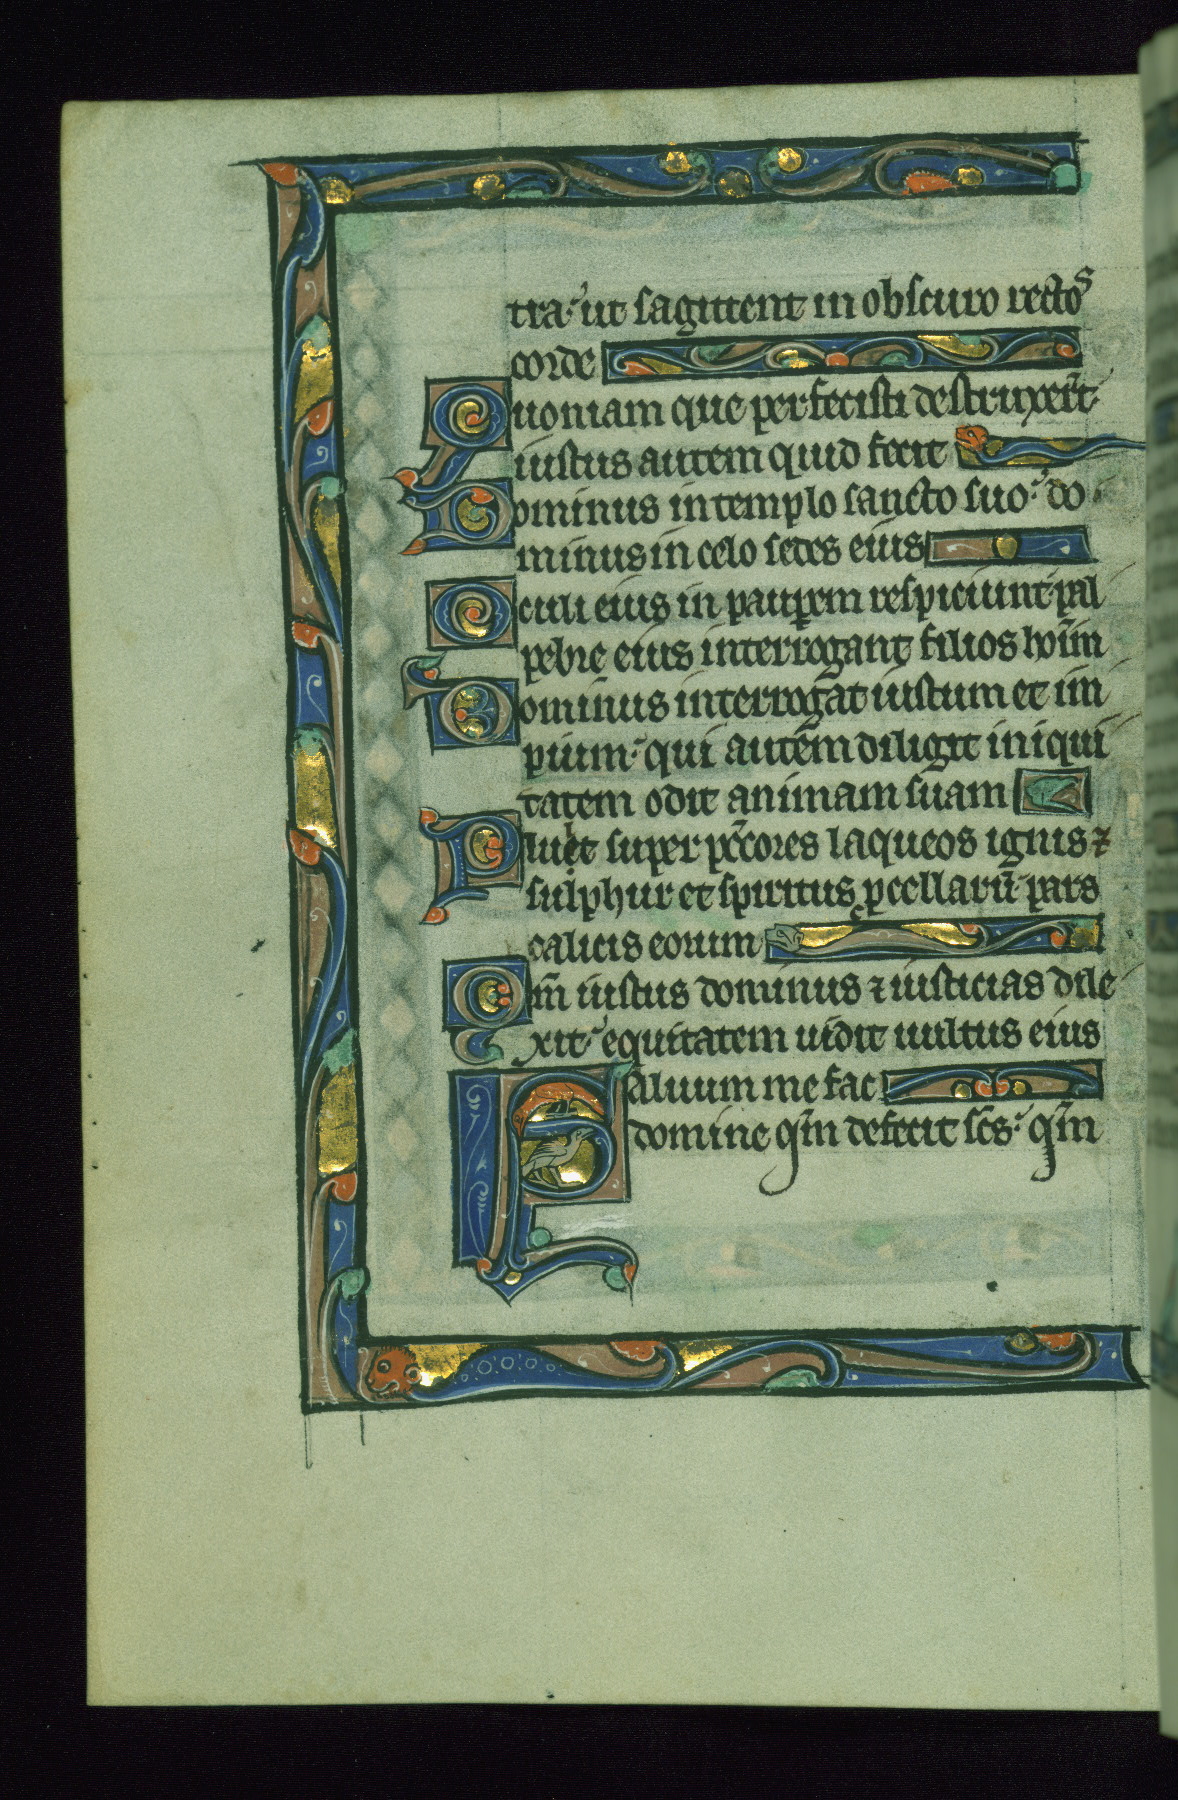 tra·᷎ ut sagittent in obscuro rectos
corde
Quoniam que perfecisti destruxer̄t·
iustus autem quid fecit
Dominus in templo sancto suo·᷎ do
minus in celo sedes eius
Oculi eius in pauꝑem respiciunt· pal
pebrę eius interrogant filios hoīm
Dominus interrogat iustum et im
pium·᷎ qui autem diligit iniqui
tatem odit animam suam
Pluet super pc̄cores laqueos ignis ⁊
sulphur et spiritus ꝓcellarū· pars
calicis eorum
Qm̄ iustus dominus ⁊ iusticias dile
xit·᷎ equitatem uidit uultus eius
Saluum me fac
domine qm̄ defecit scs̄·᷎ qm̄